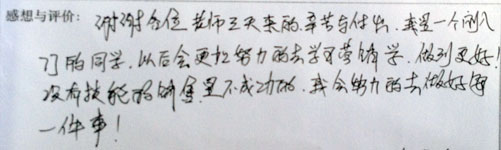 感想与评价: 谢谢各位老师三天来的辛苦与付出,我是一个刚入
门的同学,以后会更加努力的去学习营销学,做到更好!
没有技能的销售是不成功的,我会努力的去做好每
一件事!